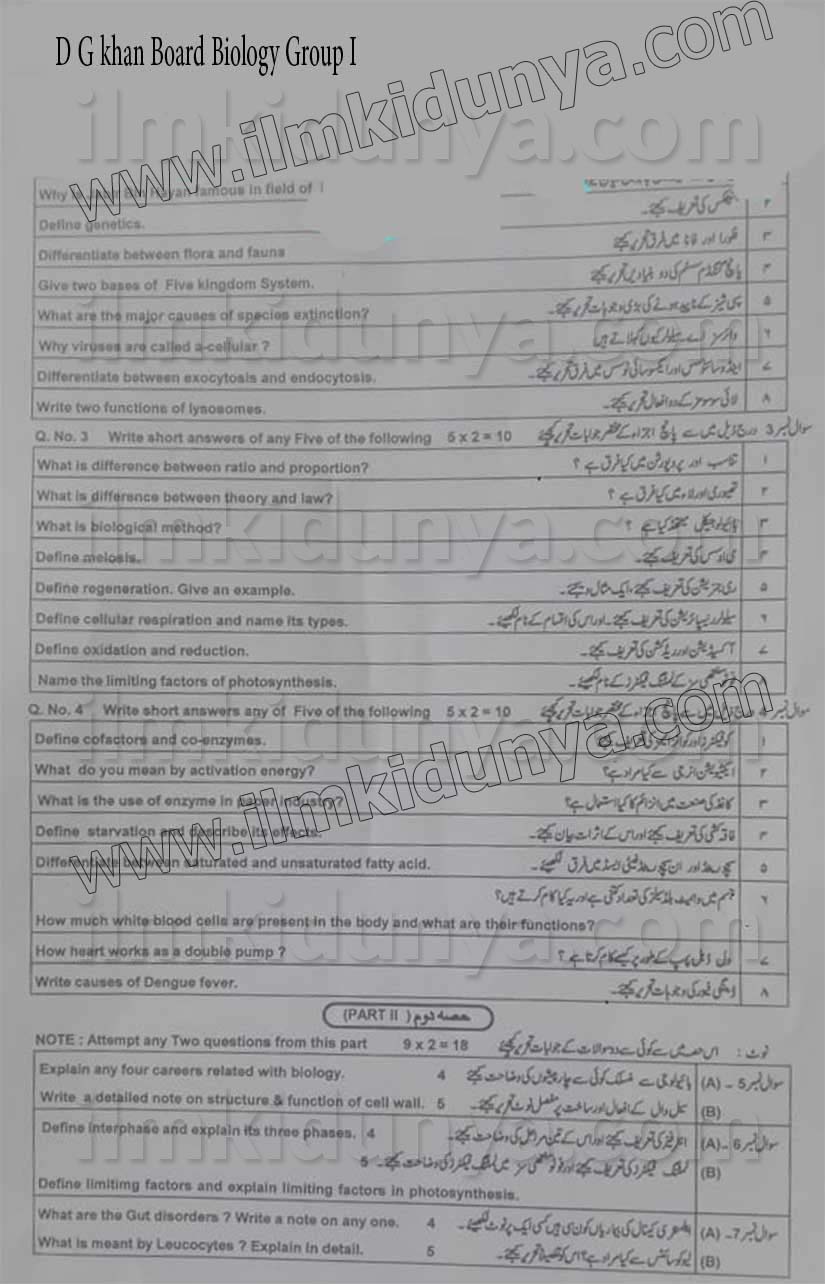 D G khan Board Biology Group I
www.ilmkidunya.com
ilmkidunya.com
Why Hayan famous in field of
Define genetics. کی تعریف کیجئے۔ ۲
Differentiate between flora and fauna فلورا اور فانا میں فرق تحریر کیجئے ۳
Give two bases of Five kingdom System. پانچ کنگڈم سسٹم کی دو بنیادیں تحریر کیجئے ۴
What are the major causes of species extinction? سپی شیز کے ناپید ہونے کی بڑی وجوہات تحریر کیجئے۔ ۵
Why viruses are called a-cellular ? وائرسز اے۔سیلولر کیوں کہلاتے ہیں ۶
Differentiate between exocytosis and endocytosis. اینڈوسائٹوسس اور ایکسوسائٹوسس میں فرق تحریر کیجئے۔ ۷
Write two functions of lysosomes. لائسوسومز کے دو افعال تحریر کیجئے۔ ۸
Q. No. 3 Write short answers of any Five of the following 5 x 2 = 10 سوال نمبر 3 درج ذیل میں سے پانچ اجزاء کے مختصر جوابات تحریر کیجئے
What is difference between ratio and proportion? تناسب اور پروپورشن میں کیا فرق ہے ؟ ۱
What is difference between theory and law? تھیوری اور لاء میں کیا فرق ہے ؟ ۲
What is biological method? بائیولوجیکل میتھڈ کیا ہے ؟ ۳
Define meiosis. می اوسس کی تعریف کیجئے۔ ۴
Define regeneration. Give an example. ری جنریشن کی تعریف کیجئے، ایک مثال دیجئے۔ ۵
Define cellular respiration and name its types. سیلولر ریسپائریشن کی تعریف کیجئے۔ اور اس کی اقسام کے نام لکھیئے۔ ۶
Define oxidation and reduction. آکسیڈیشن اور ریڈکشن کی تعریف کیجئے۔ ۷
Name the limiting factors of photosynthesis. کے لمٹنگ فیکٹرز کے نام لکھیئے۔
Q. No. 4 Write short answers any of Five of the following 5 x 2 = 10 سوال نمبر 4 درج ذیل میں سے پانچ اجزاء کے مختصر جوابات تحریر کیجئے
Define cofactors and co-enzymes. ۱
What do you mean by activation energy? ایکٹیویشن انرجی سے کیا مراد ہے؟ ۲
What is the use of enzyme in paper industry? کاغذ کی صنعت میں انزائم کا کیا استعمال ہے؟ ۳
Define starvation and describe its effects. فاقہ کشی کی تعریف کیجئے اور اس کے اثرات بیان کیجئے۔ ۴
Differentiate between saturated and unsaturated fatty acid. سیچوریٹڈ اور ان سیچوریٹڈ فیٹی ایسڈ میں فرق لکھیئے۔ ۵
جسم میں وائیٹ بلڈ سیلز کی تعداد کتنی ہے اور یہ کیا کام کرتے ہیں؟ ۶
How much white blood cells are present in the body and what are their functions?
How heart works as a double pump ? دل ڈبل پمپ کے طور پر کیسے کام کرتا ہے ؟ ۷
Write causes of Dengue fever. ڈینگی فیور کی وجوہات تحریر کیجئے۔ ۸
(PART II) حصہ دوم
NOTE : Attempt any Two questions from this part 9 x 2 = 18 نوٹ : اس حصہ میں سے کوئی سے دو سوالات کے جوابات تحریر کیجئے
Explain any four careers related with biology. 4 بائیولوجی سے منسلک کوئی سے چار پیشوں کی وضاحت کیجئے سوال نمبر 5 - (A)
Write a detailed note on structure & function of cell wall. 5 سیل وال کے افعال اور ساخت پر مفصل نوٹ تحریر کیجئے۔ (B)
Define interphase and explain its three phases. 4 انٹرفیز کی تعریف کیجئے اور اس کے تین مراحل کی وضاحت کیجئے۔ سوال نمبر 6 - (A)
لمٹنگ فیکٹرز کی تعریف کیجئے اور فوٹو سنتھی سز میں لمٹنگ فیکٹرز کی وضاحت کیجئے۔ 5 (B)
Define limitimg factors and explain limiting factors in photosynthesis.
What are the Gut disorders ? Write a note on any one. 4 ایلیمنٹری کینال کی بیماریاں کون سی ہیں کسی ایک پر نوٹ لکھیئے۔ سوال نمبر 7 - (A)
What is meant by Leucocytes ? Explain in detail. 5 لیوکوسائٹس سے کیا مراد ہے؟ اس کو تفصیلاً تحریر کیجئے۔ (B)